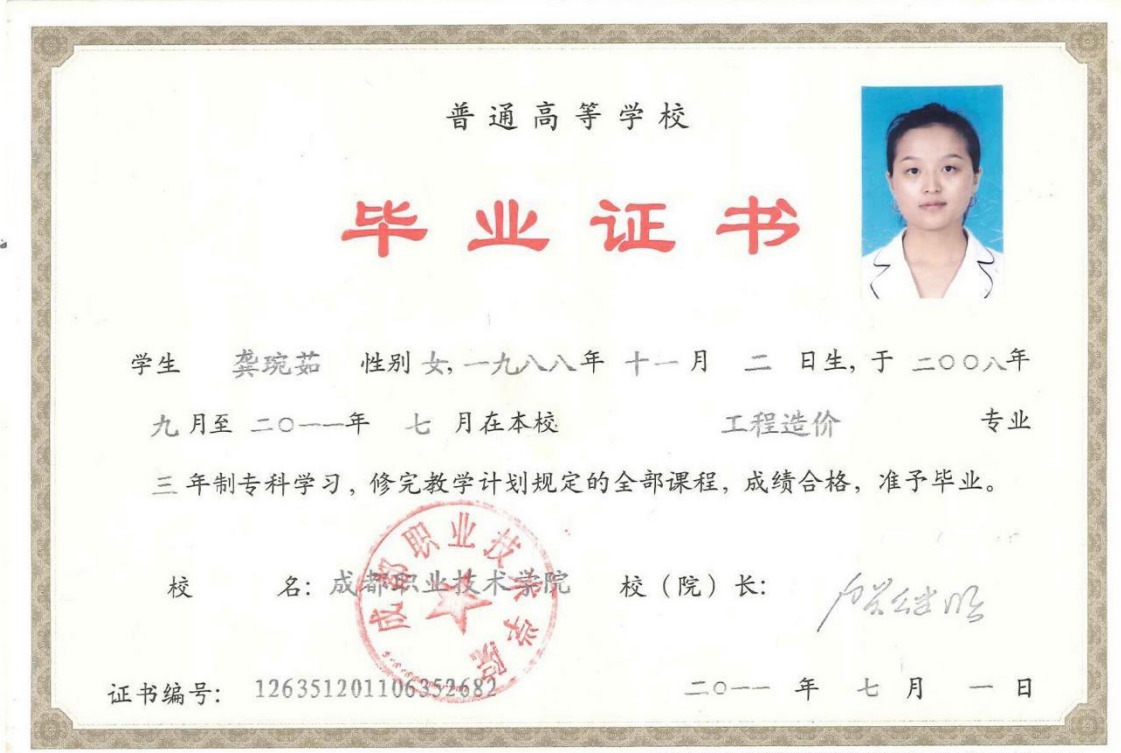 普通高等学校
毕业证书
学生 龚琬茹 性别 女, 一九八八年 十一月 二 日生, 于 二〇〇八年
九 月至 二〇一一年 七 月在本校 工程造价 专业
三 年制专科学习, 修完教学计划规定的全部课程, 成绩合格, 准予毕业。
成都职业技术学院
校 名: 成都职业技术学院 校 (院) 长:
证书编号: 126351201106352682 二〇一一 年 七 月 一 日